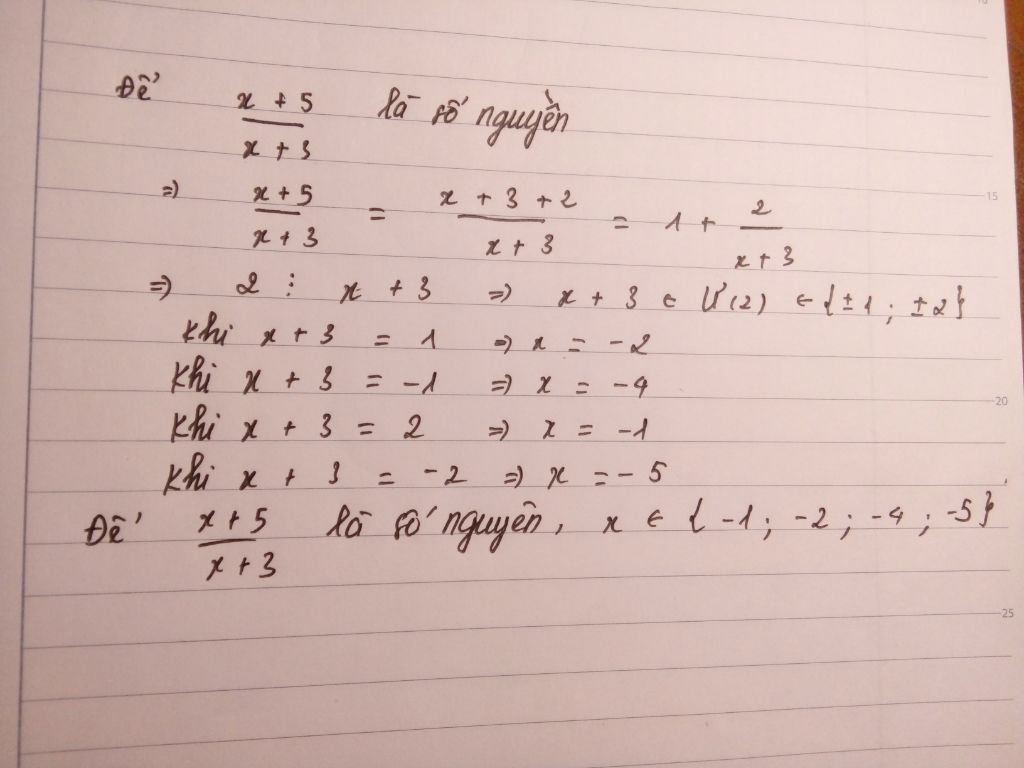 Để x + 5 / x + 3 là số nguyền
=> x + 5 / x + 3 = x + 3 + 2 / x + 3 = 1 + 2 / x + 3
=> 2 ⋮ x + 3 => x + 3 ∈ Ư(2) ∈ {±1 ; ±2}
Khi x + 3 = 1 => x = -2
Khi x + 3 = -1 => x = -4
Khi x + 3 = 2 => x = -1
Khi x + 3 = -2 => x = -5
Để x + 5 / x + 3 là số nguyên, x ∈ {-1 ; -2 ; -4 ; -5}
15
20
25